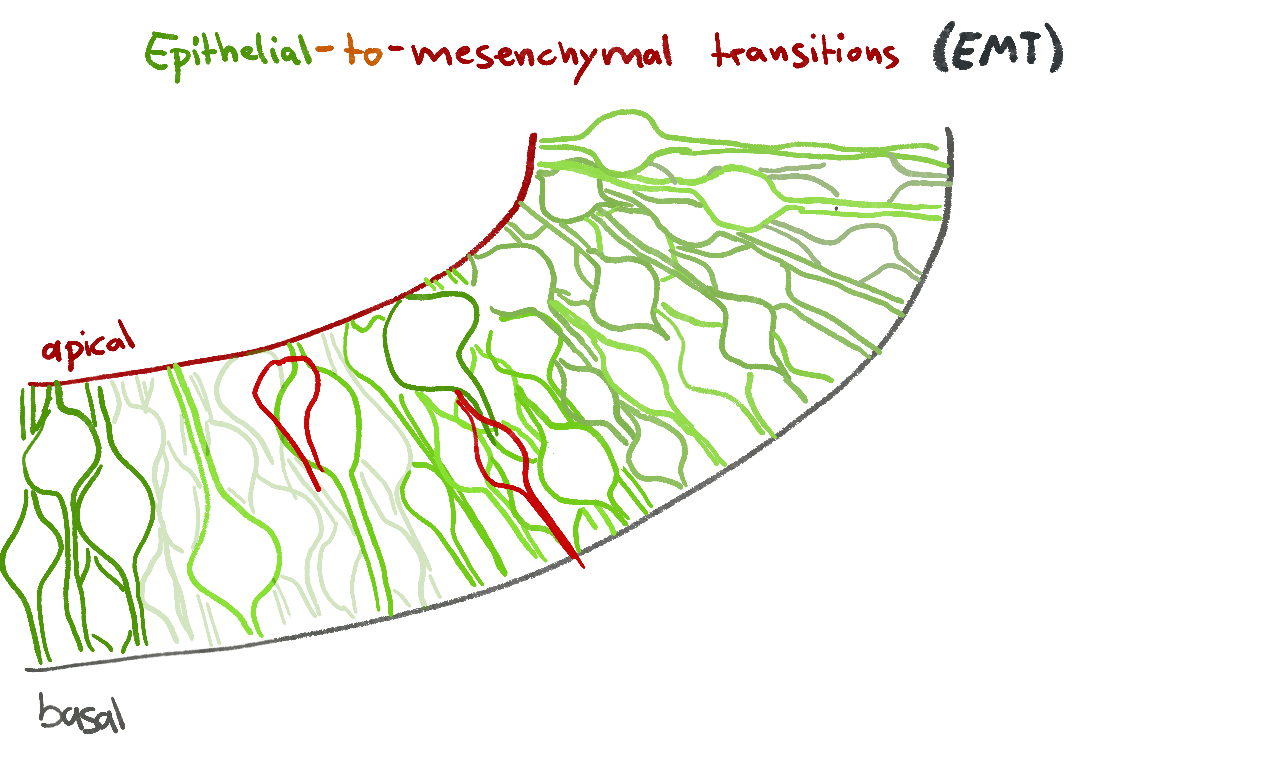 Epithelial-to-mesenchymal transitions (EMT)
apical
basal